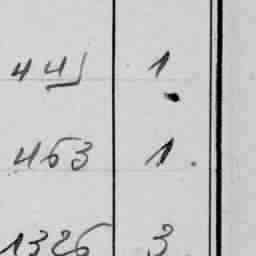 441 1
453 1.
1326 3